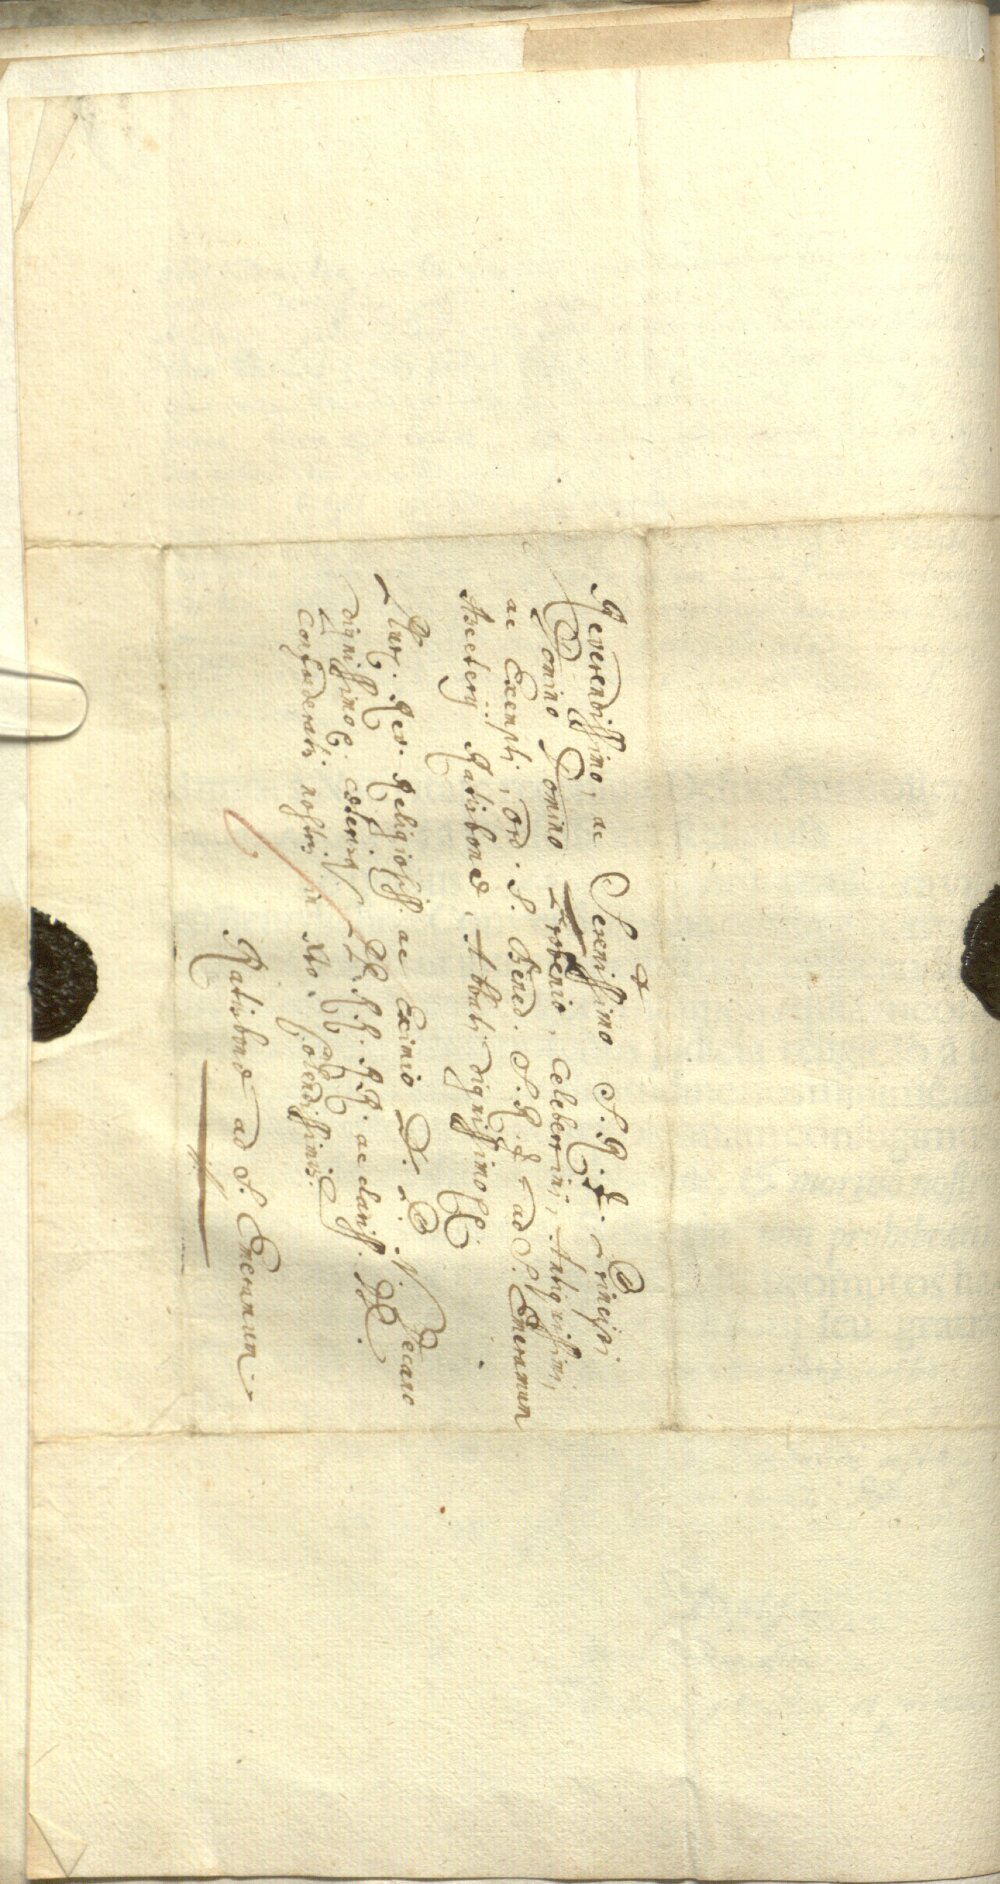 Reverendissimo, ac Serenissimo S. R. I. Principi
Domino Domino Frobenio, Celeberrimi, Antiquissimi,
ac Exempti, Ord. S. Bened. S. R. I. ad S. Emeramum
Asceterij Ratisbonæ Abbati dignissimo
Plur. Red. Religiosiss. ac Eximio D. P. N. Decano
dignissimo, cæterisq. RR. ac Clariss. DD.
Confœderatis nostris in Xto. Colendissimis.
Ratisbonæ ad S. Emeramum